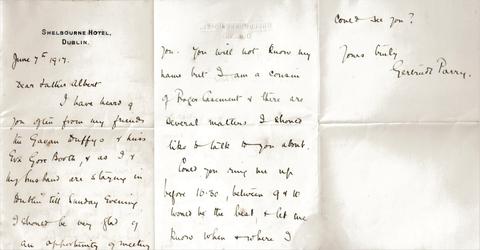 SHELBOURNE HOTEL,
DUBLIN.
June 7th 1917.
Dear Father Albert
I have heard of
you often from my friends
the Gavan Duffys & Miss
Eva Gore Booth, & as I &
my husband are staying in
Dublin till Sunday Evening,
I should be very glad of
an opportunity of meeting
you. You will not know my
name but I am a cousin
of Roger Casement & there are
several matters I should
like to talk to you about.
Could you ring me up
before 10.30, between 9 & 10
would be the best, & let me
know when & where I
could see you?
Yours truly
Gertrude Parry.